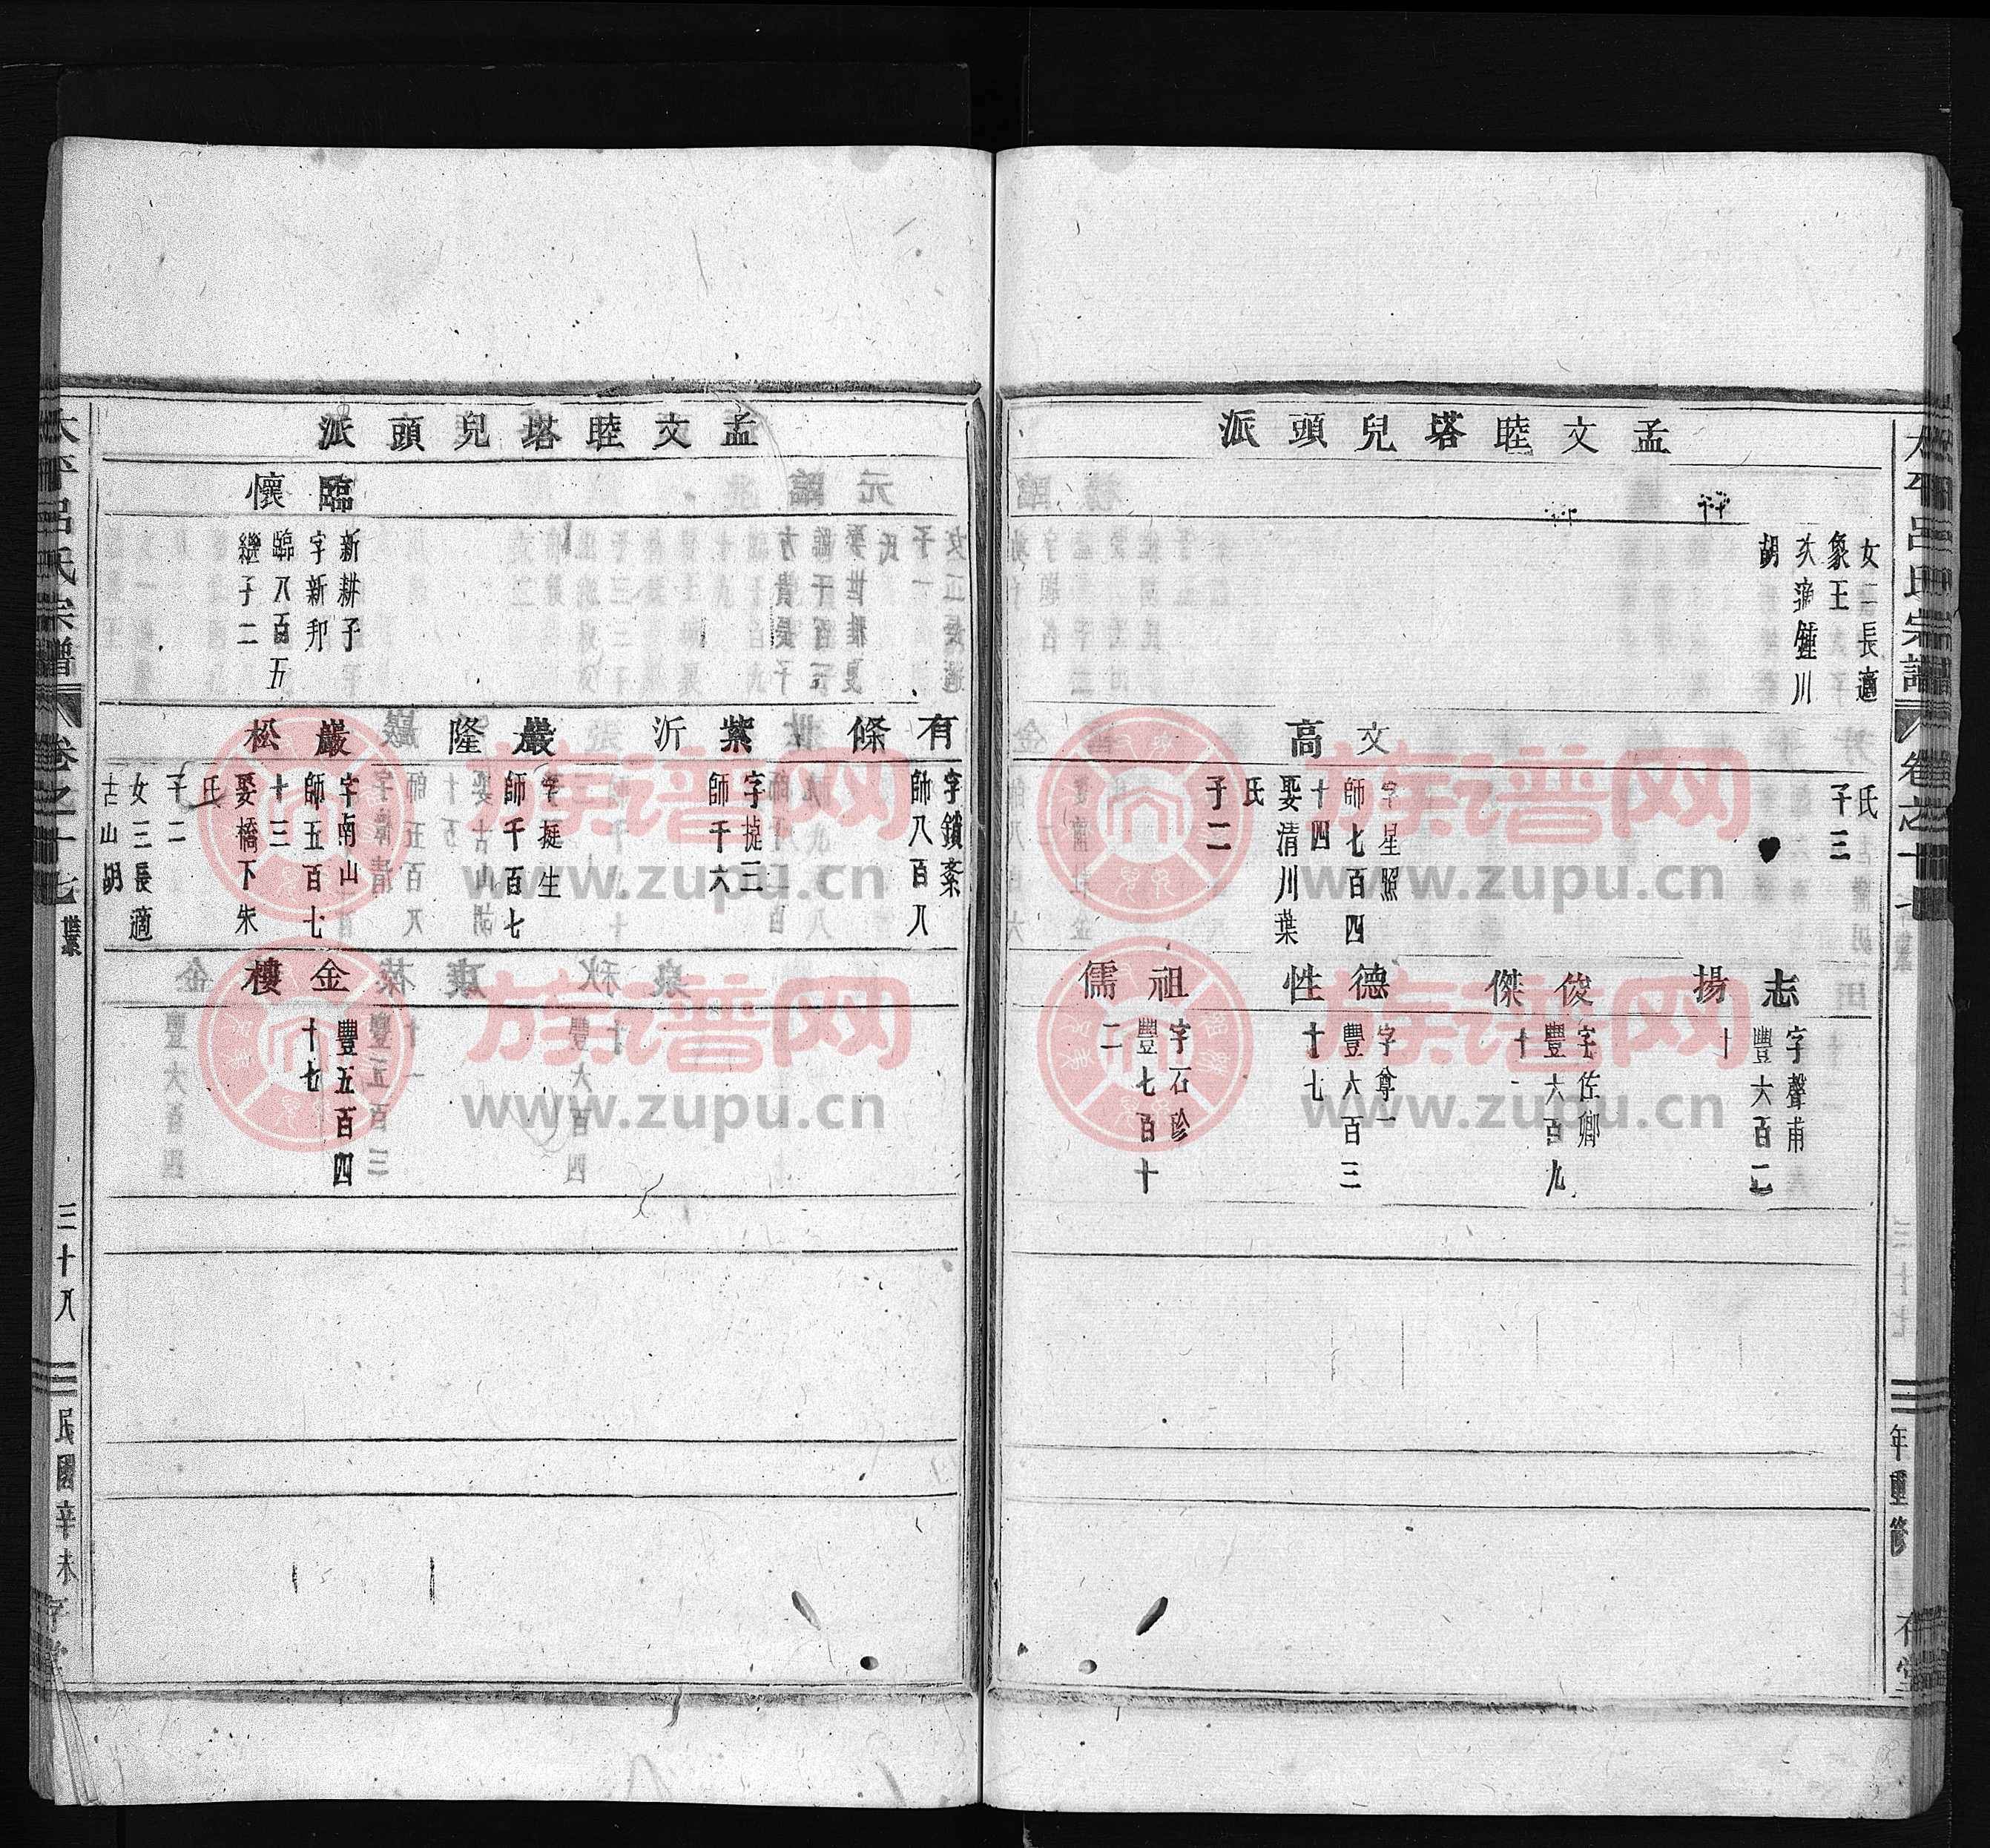 太平呂氏宗譜
卷之十七
年重修
孟文睦塔兒頭派
女二長適
象王
次適鍾川
胡
氏
子三
文高
字星照
師七百四
十四
娶清川葉
氏
子二
志揚
字聲甫
豐六百二
十
俊傑
字佐卿
豐六百九
十
德性
字尊一
豐六百三
十七
祖儒
字石珍
豐七百十
二
孟文睦塔兒頭派
臨懷
新耕子
字新邦
臨八百五
繼子二
有條
師八百八
紫沂
師千六
巖隆
字挺生
師千百七
巖松
字南山
師五百七
十三
娶橋下朱
氏
子二
女三長適
古山胡
金樓
豐五百四
十七
太平呂氏宗譜
卷之十七
三十八
民國辛未
族谱网
www.zupu.cn
族谱网
www.zupu.cn
族谱网
www.zupu.cn
族谱网
www.zupu.cn